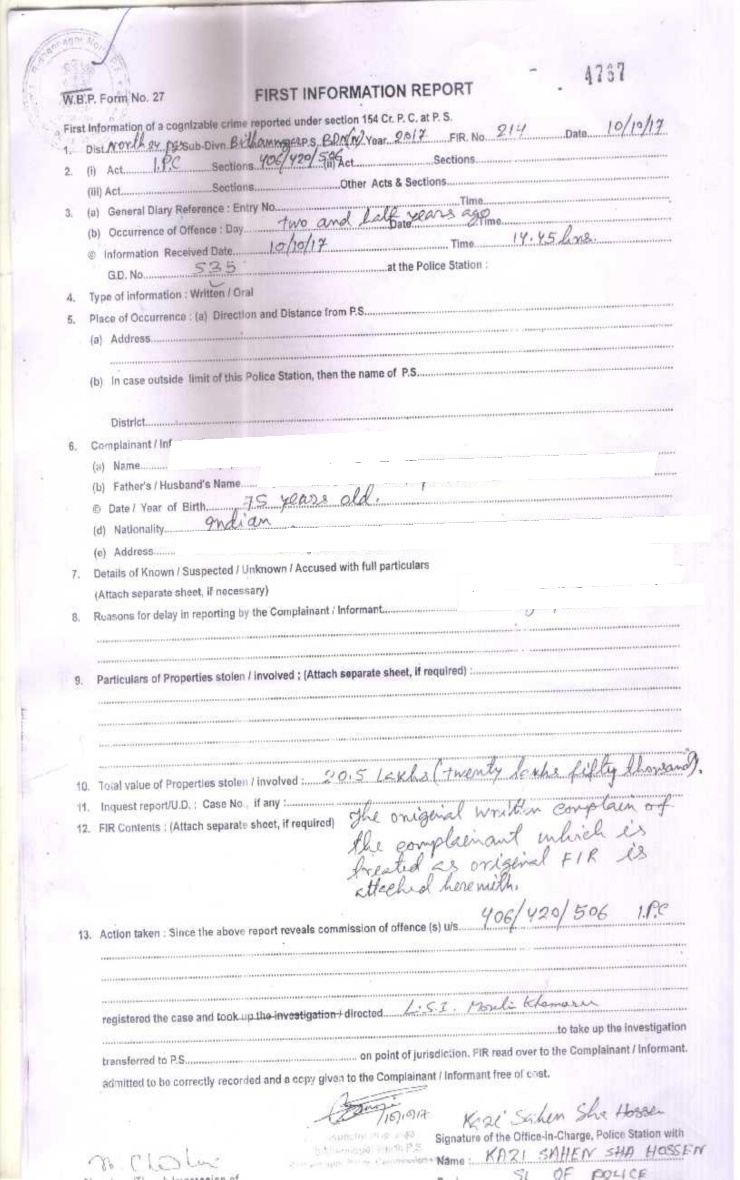 4767
W.B.P. Form No. 27
FIRST INFORMATION REPORT
First Information of a cognizable crime reported under section 154 Cr. P. C. at P. S.
1. Dist. North 24 PGS Sub-Divn. Bidhannagar P.S. BDN(N) Year 2017 FIR. No. 214 Date 10/10/17
2. (i) Act I.P.C Sections 406/420/506 (ii) Act Sections
(iii) Act Sections Other Acts & Sections
3. (a) General Diary Reference : Entry No. Time
(b) Occurrence of Offence : Day two and half years ago Date Time
© Information Received Date 10/10/17 Time 14.45 hrs.
G.D. No. 535 at the Police Station :
4. Type of information : Written / Oral
5. Place of Occurrence : (a) Direction and Distance from P.S.
(a) Address
(b) In case outside limit of this Police Station, then the name of P.S.
District
6. Complainant / Inf
(a) Name
(b) Father's / Husband's Name
© Date / Year of Birth 75 years old.
(d) Nationality Indian
(e) Address
7. Details of Known / Suspected / Unknown / Accused with full particulars
(Attach separate sheet, if necessary)
8. Reasons for delay in reporting by the Complainant / Informant
9. Particulars of Properties stolen / involved ; (Attach separate sheet, if required) :
10. Total value of Properties stolen / involved : 20.5 Lakhs (twenty lakhs fifty thousand).
11. Inquest report/U.D. : Case No., if any :
12. FIR Contents : (Attach separate sheet, if required) The original written complain of
the complainant which is
treated as original FIR is
attached herewith.
13. Action taken : Since the above report reveals commission of offence (s) u/s. 406/420/506 I.P.C
registered the case and took up the investigation / directed L.S.I. Mouli Khamaru
to take up the investigation
transferred to P.S. on point of jurisdiction. FIR read over to the Complainant / Informant.
admitted to be correctly recorded and a copy given to the Complainant / Informant free of cost.
10/10/17
Kazi Sahen Sha Hossen
Signature of the Office-in-Charge, Police Station with
Name : KAZI SAHEN SHA HOSSEN
SI OF POLICE